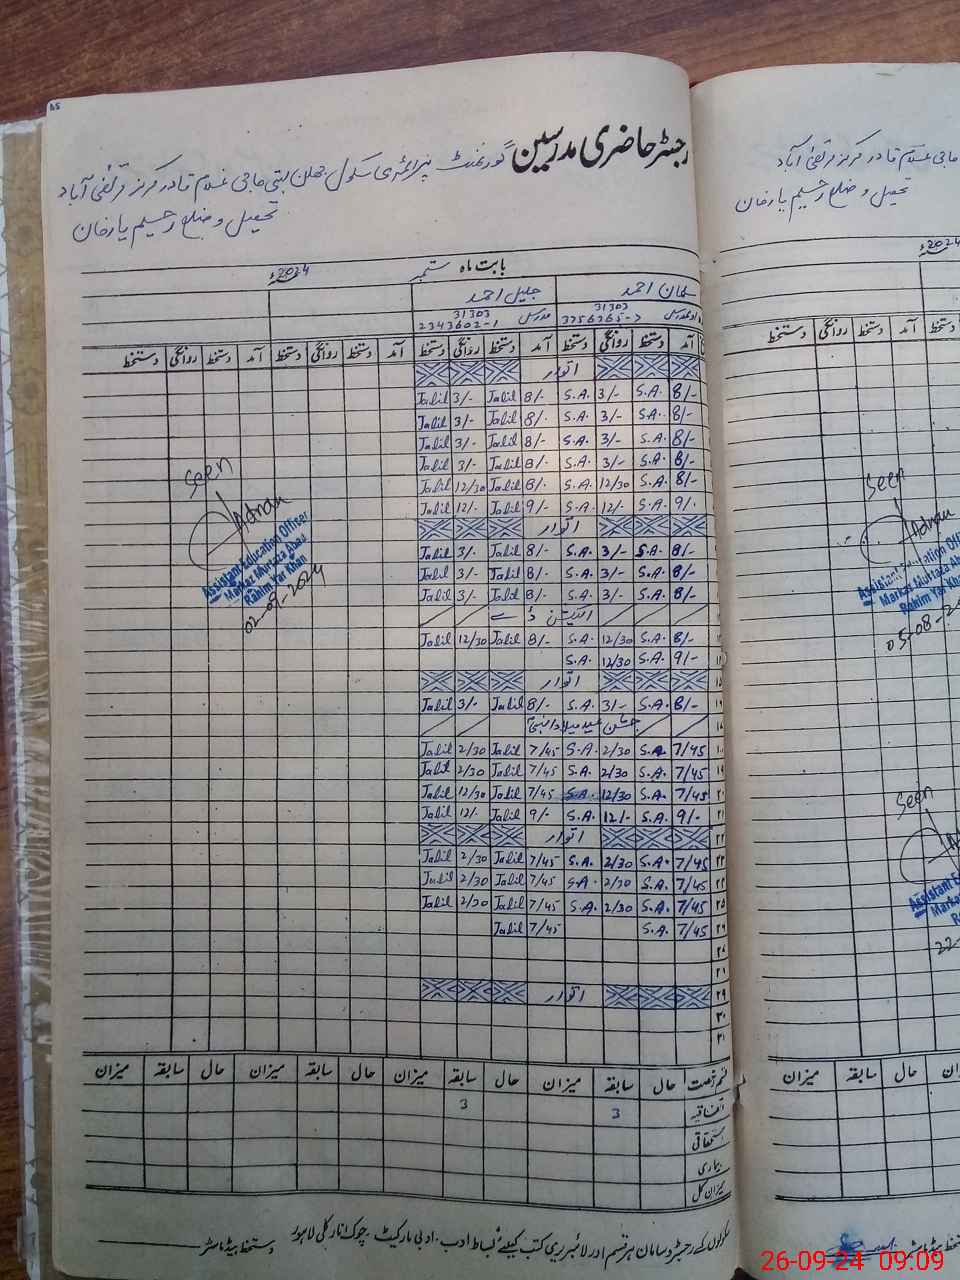 رجسٹر حاضری مدرسین گورنمنٹ پرائمری سکول بستی حاجی غلام قادر مرکز مرتضیٰ آباد
تحصیل و ضلع رحیم یار خان
بابت ماہ ستمبر 2024ء
سلمان احمد جلیل احمد
31303 مدرس 31303
2343602-1
آمد دستخط روانگی دستخط آمد دستخط روانگی دستخط آمد دستخط روانگی دستخط آمد دستخط روانگی دستخط
اتوار
8/- S.A. 3/- S.A. 8/- Jalil 3/- Jalil
8/- S.A. 3/- S.A. 8/- Jalil 3/- Jalil
8/- S.A. 3/- S.A. 8/- Jalil 3/- Jalil
8/- S.A. 3/- S.A. 8/- Jalil 3/- Jalil
8/- S.A. 12/30 S.A. 8/- Jalil 12/30 Jalil
9/- S.A. 12/- S.A. 9/- Jalil 12/- Jalil
اتوار
8/- S.A. 3/- S.A. 8/- Jalil 3/- Jalil
8/- S.A. 3/- S.A. 8/- Jalil 3/- Jalil
8/- S.A. 3/- S.A. 8/- Jalil 3/- Jalil
الیکشن ڈے
8/- S.A. 12/30 S.A. 8/- Jalil 12/30 Jalil
9/- S.A. 12/30 S.A.
۱۵ اتوار
8/- S.A. 3/- S.A. 8/- Jalil 3/- Jalil
جشن عید میلاد النبیؐ
7/45 S.A. 2/30 S.A. 7/45 Jalil 2/30 Jalil
۱۹ 7/45 S.A. 2/30 S.A. 7/45 Jalil 2/30 Jalil
۲۰ 7/45 S.A. 12/30 S.A. 7/45 Jalil 12/30 Jalil
۲۱ 9/- S.A. 12/- S.A. 9/- Jalil 12/- Jalil
۲۲ اتوار
۲۳ 7/45 S.A. 2/30 S.A. 7/45 Jalil 2/30 Jalil
۲۴ 7/45 S.A. 2/30 S.A. 7/45 Jalil 2/30 Jalil
۲۵ 7/45 S.A. 2/30 S.A. 7/45 Jalil 2/30 Jalil
۲۶ 7/45 S.A. 7/45 Jalil
۲۷
۲۸
۲۹ اتوار
۳۰
۳۱
Seen
Adnan
Assistant Education Officer
Markaz Murtaza Abad
Rahim Yar Khan
02-09-2024
قسم رخصت حال سابقہ میزان حال سابقہ میزان حال سابقہ میزان حال سابقہ میزان
اتفاقیہ 3 3
استحقاقی
بیماری
میزان کل
سکولوں کے رجسٹر و سامان ہر قسم اور لائبریری کتب کیلئے بساط ادب، ادبی مارکیٹ، چوک انارکلی لاہور
دستخط ہیڈ ماسٹر
حاجی غلام قادر مرکز مرتضیٰ آباد
تحصیل و ضلع رحیم یار خان
2024ء
دستخط روانگی دستخط آمد
Seen
Adnan
05-08-24
Seen
میزان سابقہ حال میزان
26-09-24 09:09